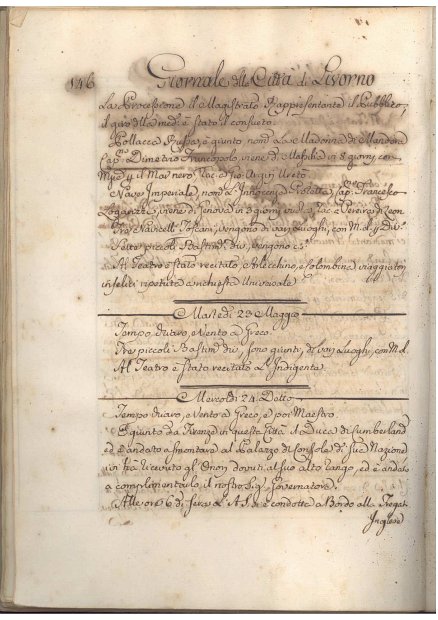 146 Giornale della Città di Livorno
La Processione il Magistrato Rappresentante il Pubblico,
il giro della med. è stato il consueto.
Pollacca Russa, è giunto nom. La Madonna di Mandora
Cap. Dimetrio Franopolo, viene di Marsilia in 8 giorni con
Nave Imperiale, nom. L'Innocenza Protetta, Cap. Francesco
viene di Genova in 3 giorni
Tre Navicelli Toscani, vengono di varj Luoghi, con M. di Div.
Sette piccoli Bastim. Div. vengono c.s.
Al Teatro è stato recitato, Arlecchino, e Colombina viaggiatori
infelici riportata a richiesta Universale
Martedì 23 Maggio
Tempo chiaro, e Vento a Greco.
Tre piccoli Bastim. div. sono giunti, di varj Luoghi, con M. d.
Al Teatro è stato recitato L'Indigenta.
Mercoldì 24. Detto
Tempo chiaro, e Vento a Greco, e poi Maestro.
È giunto da Firenze in questa Città il Duca di Cumberland
ed è andato a smontare al Palazzo di Console di sue Nazione
ricevuto gl'Onori dovuti al suo alto rango, ed è andato
a complimentarlo il nostro Sig. Governatore.
Alle ore 6 di sera L'A.S. si è condotta a Bordo alla Fregat.
Inglese